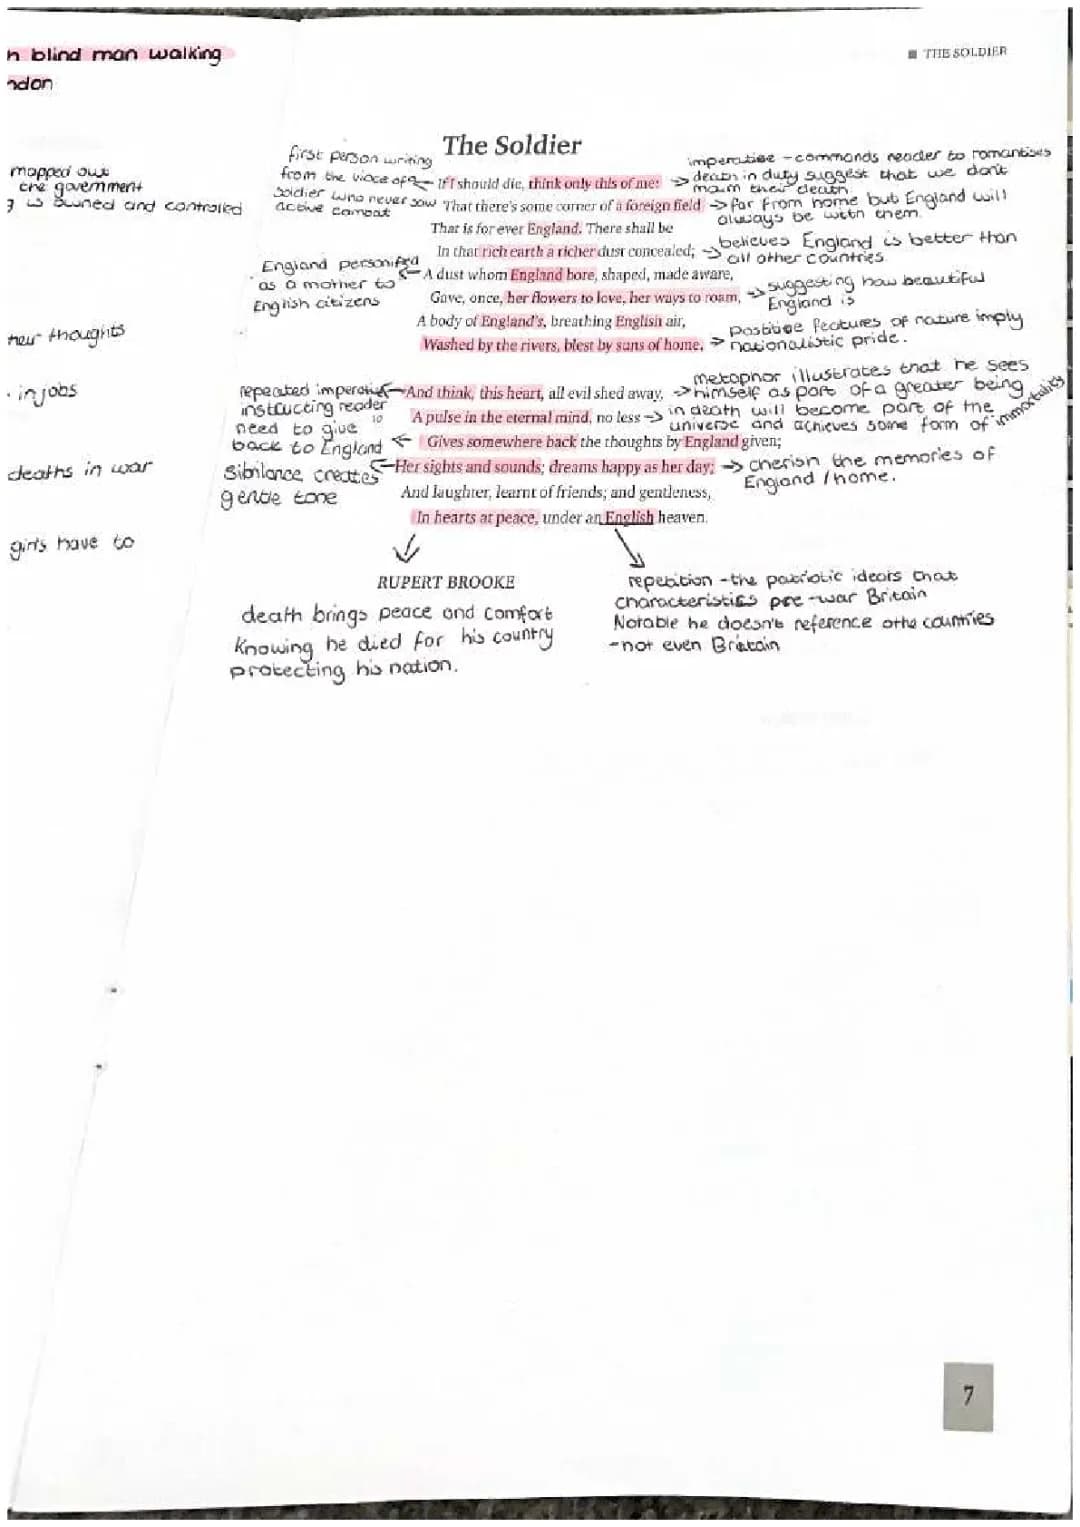 n blind man walking
ndon
mapped out
the government
g is owned and controlled
their thoughts
. in jobs
deaths in war
girls have to
■ THE SOLDIER
The Soldier
first person writing
from the voice of a
soldier who never saw
active combat
imperative - commands reader to romantises
death in duty suggest that we don't
mourn their death.
If I should die, think only this of me:
That there's some corner of a foreign field
→ far from home but England will
always be with them.
That is for ever England. There shall be
In that rich earth a richer dust concealed;
→ believes England is better than
all other countries
England personified
as a mother to
English citizens
A dust whom England bore, shaped, made aware,
Gave, once, her flowers to love, her ways to roam,
→ suggesting how beautiful
England is
A body of England's, breathing English air,
Washed by the rivers, blest by suns of home.
→ positive features of nature imply
nationalistic pride.
repeated imperative
instructing reader
need to give
back to England
And think, this heart, all evil shed away,
10 A pulse in the eternal mind, no less
→ metaphor illustrates that he sees
himself as part of a greater being
→ in death will become part of the
universe and achieves some form of immortality
Gives somewhere back the thoughts by England given;
Sibilance creates
gentle tone
Her sights and sounds; dreams happy as her day;
→ cherish the memories of
England / home.
And laughter, learnt of friends; and gentleness,
In hearts at peace, under an English heaven.
RUPERT BROOKE
death brings peace and comfort
Knowing he died for his country
protecting his nation.
repetition - the patriotic ideors that
characteristics pre-war Britain
Notable he doesn't reference othe countries
- not even Britain
7